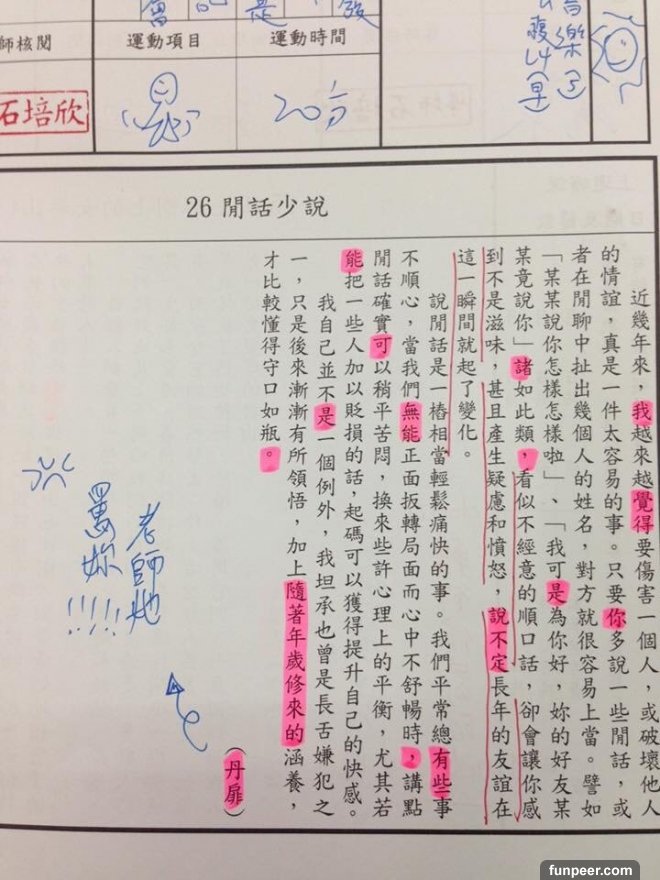 師核閱
運動項目
運動時間
石培欣
20分
26 閒話少說
近幾年來，我越來越覺得要傷害一個人，或破壞他人
的情誼，真是一件太容易的事。只要你多說一些閒話，或
者在閒聊中扯出幾個人的姓名，對方就很容易上當。譬如
「某某說你怎樣怎樣啦」、「我可是為你好，妳的好友某
某竟說你」諸如此類，看似不經意的順口話，卻會讓你感
到不是滋味，甚且產生疑慮和憤怒，說不定長年的友誼在
這一瞬間就起了變化。
說閒話是一樁相當輕鬆痛快的事。我們平常總有些事
不順心，當我們無能正面扳轉局面而心中不舒暢時，講點
閒話確實可以稍平苦悶，換來些許心理上的平衡，尤其若
能把一些人加以貶損的話，起碼可以獲得提升自己的快感。
我自己並不是一個例外，我坦承也曾是長舌嫌犯之
一，只是後來漸漸有所領悟，加上隨著年歲修來的涵養，
才比較懂得守口如瓶。
（丹扉）
老師她
罵妳!!!!
funpeer.com